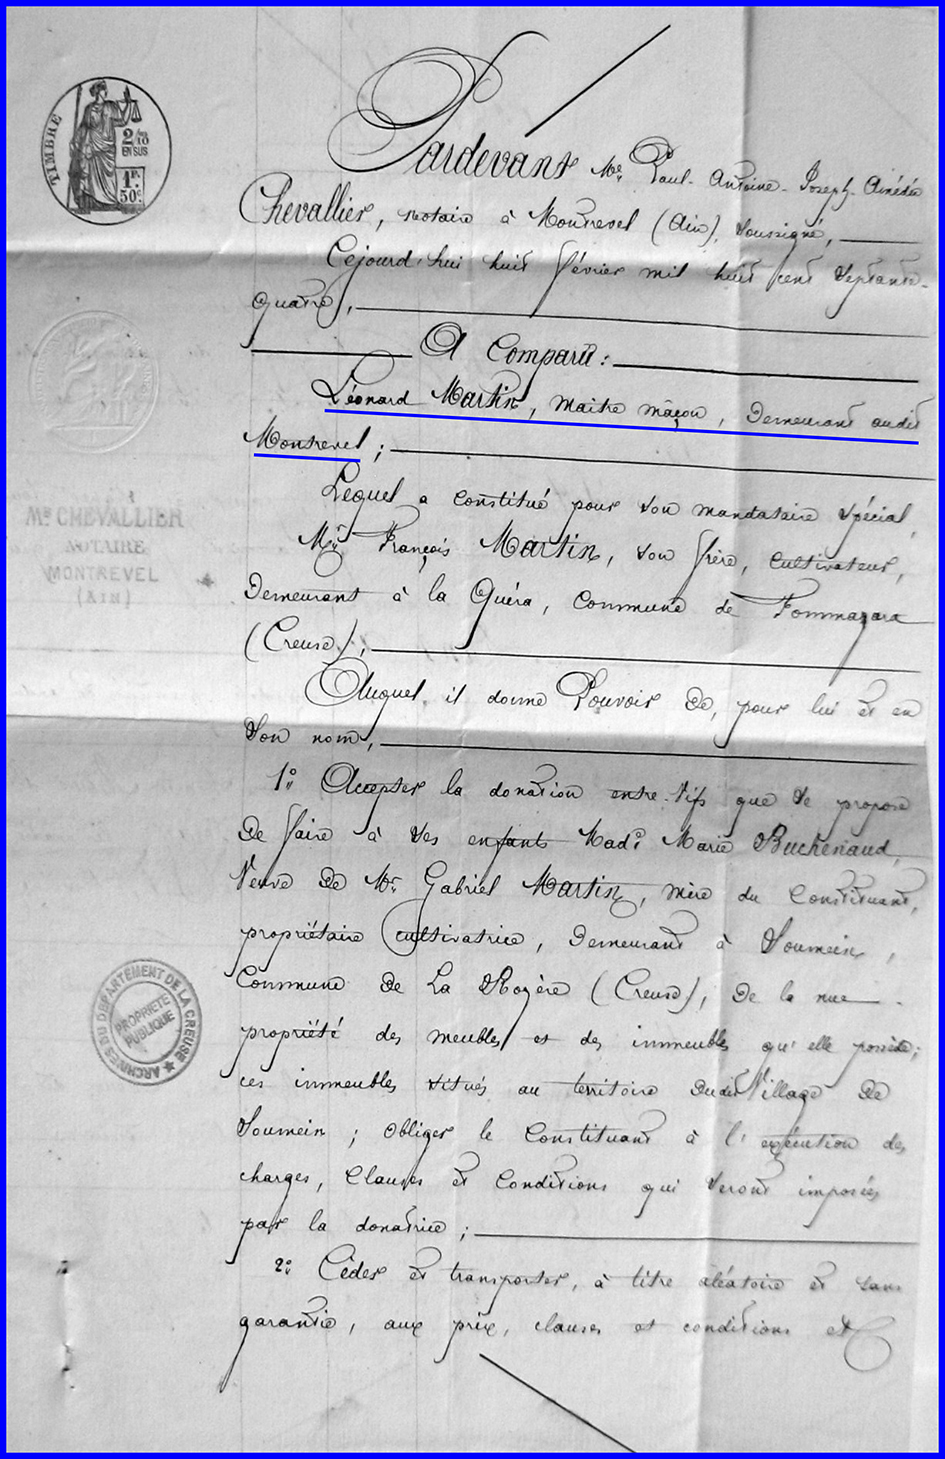 TIMBRE
2/10
EN SUS
1F.
50c.
Pardevant Me. Paul-Antoine-Joseph-Amédée
Chevallier, notaire à Montrevel (Ain), soussigné,
Cejourd'hui huit février mil huit cent septante-
quatre,
A Comparu:
Léonard Martin, maitre maçon, demeurant audit
Montrevel;
Lequel a constitué pour son mandataire spécial,
Mr. François Martin, son frère, cultivateur,
Demeurant à la Quéra, commune de Pommazara
(Creuse),
Auquel il donne Pouvoir de, pour lui et en
son nom,
1º. Accepter la donation entre-vifs que se propose
de faire à ses enfants Made. Marie Buchenaud,
Veuve de Mr. Gabriel Martin, mère du constituant,
propriétaire cultivatrice, demeurant à Soumein,
Commune de La Rozère (Creuse), de la nue
propriété des meubles et des immeubles qu'elle possède;
ces immeubles situés au territoire dudit Village de
Soumein; obliger le constituant à l'exécution des
charges, clauses et conditions qui seront imposées
par la donatrice;
2º. Céder et transporter, à titre aléatoire et sans
garantie, aux prix, clauses et conditions et
Me CHEVALLIER
NOTAIRE
MONTREVEL
(AIN)
ARCHIVES DU DÉPARTEMENT DE LA CREUSE
PROPRIÉTÉ
PUBLIQUE